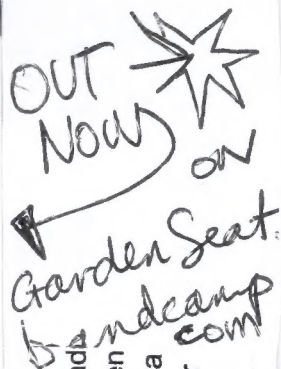 OUT
NOW
ON
GardenSeat.
bandcamp
com
nd
en
a